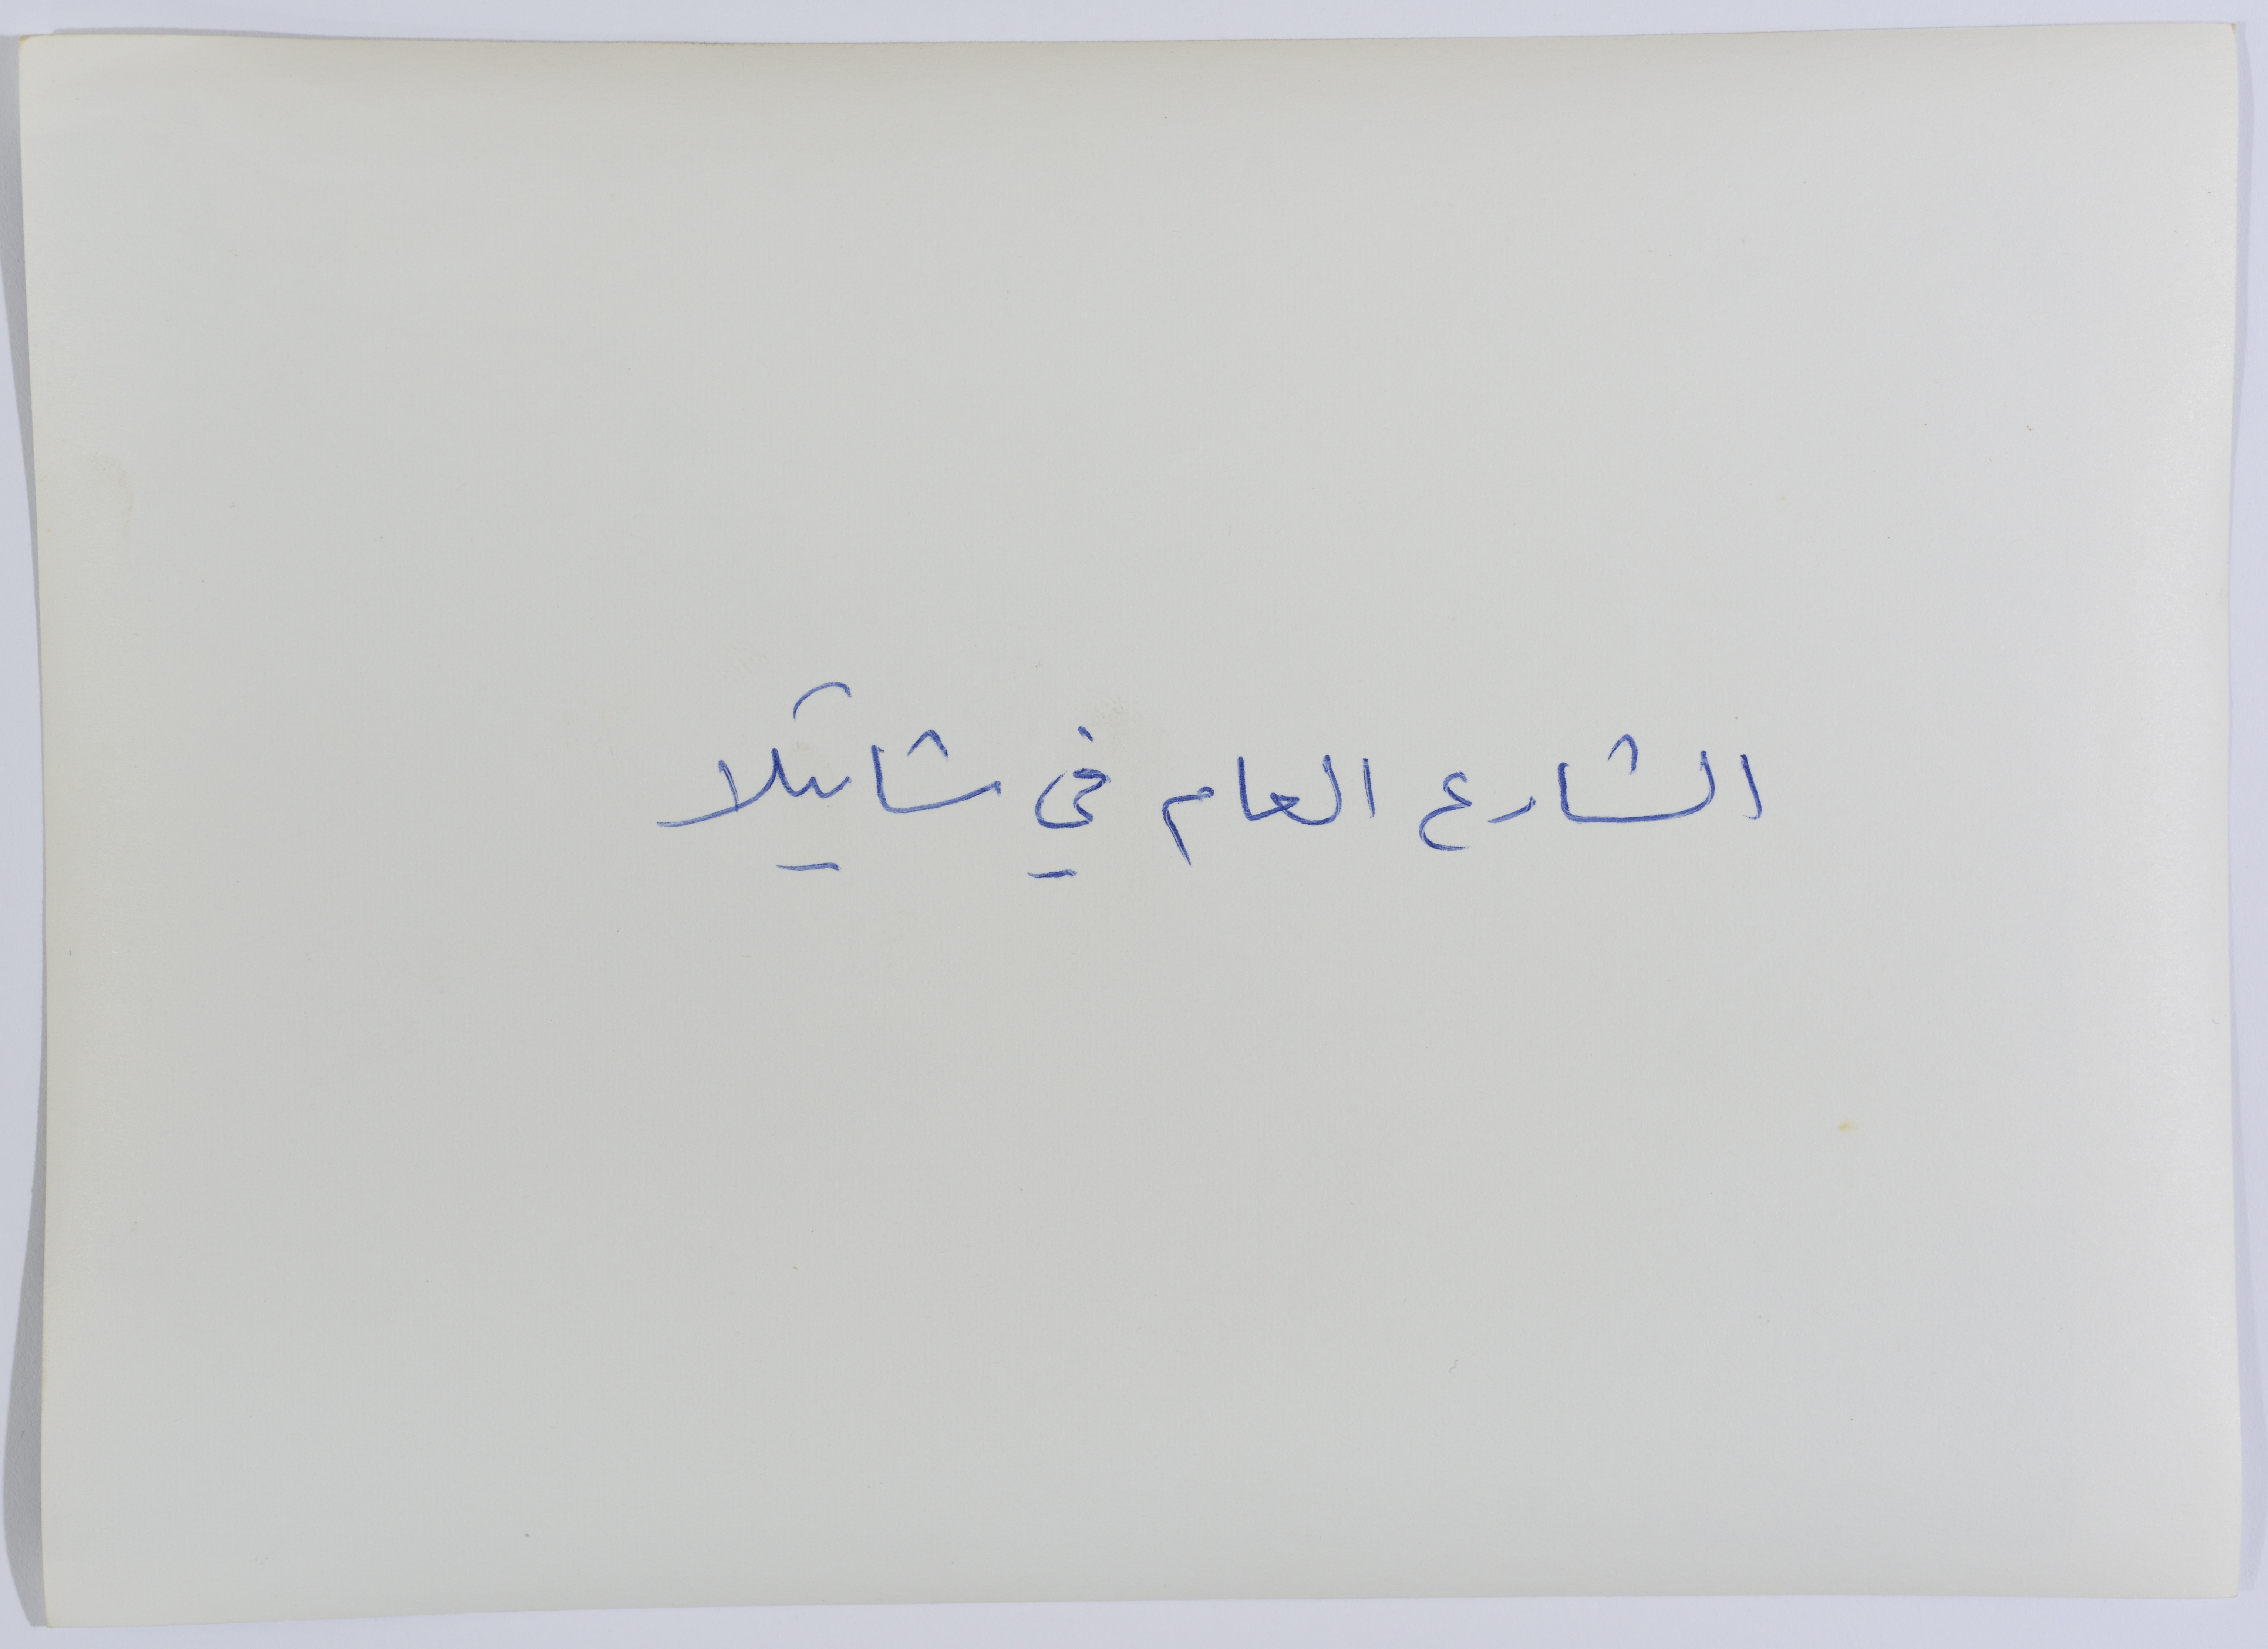 الشارع العام في شاتيلا